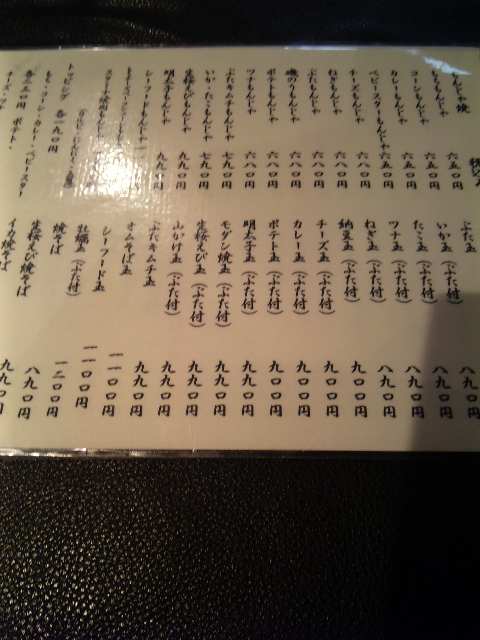 もんじゃ焼
もちもんじゃ
コーンもんじゃ
カレーもんじゃ
ベビースターもんじゃ
チーズもんじゃ
ねぎもんじゃ
ぶたもんじゃ
磯のりもんじゃ
ポテトもんじゃ
ツナもんじゃ
ぶたキムチもんじゃ
いか・たこもんじゃ
生桜えびもんじゃ
明太子もんじゃ
シーフードもんじゃ
トッピング 各一九〇円
もち・コーン・カレー・ベビースター
各二五〇円 ポテト・
チーズ・ツナ
六五〇円
六五〇円
六五〇円
六五〇円
六八〇円
六八〇円
六八〇円
六八〇円
六八〇円
六八〇円
七九〇円
七九〇円
九九〇円
九九〇円
ぶた玉
いか玉（ぶた付）
たこ玉（ぶた付）
ツナ玉（ぶた付）
ねぎ玉（ぶた付）
納豆玉（ぶた付）
チーズ玉（ぶた付）
カレー玉（ぶた付）
ポテト玉（ぶた付）
明太子玉（ぶた付）
モダン焼玉（ぶた付）
生桜えび玉（ぶた付）
山かけ玉（ぶた付）
ぶたキムチ玉
オムそば玉
シーフード玉
牡蠣玉（ぶた付）
焼そば
生桜えび焼そば
イカ焼そば
八九〇円
八九〇円
八九〇円
八九〇円
九九〇円
九九〇円
九九〇円
九九〇円
九九〇円
九九〇円
九九〇円
九九〇円
九九〇円
一一〇〇円
一一〇〇円
一二〇〇円
八九〇円
九九〇円